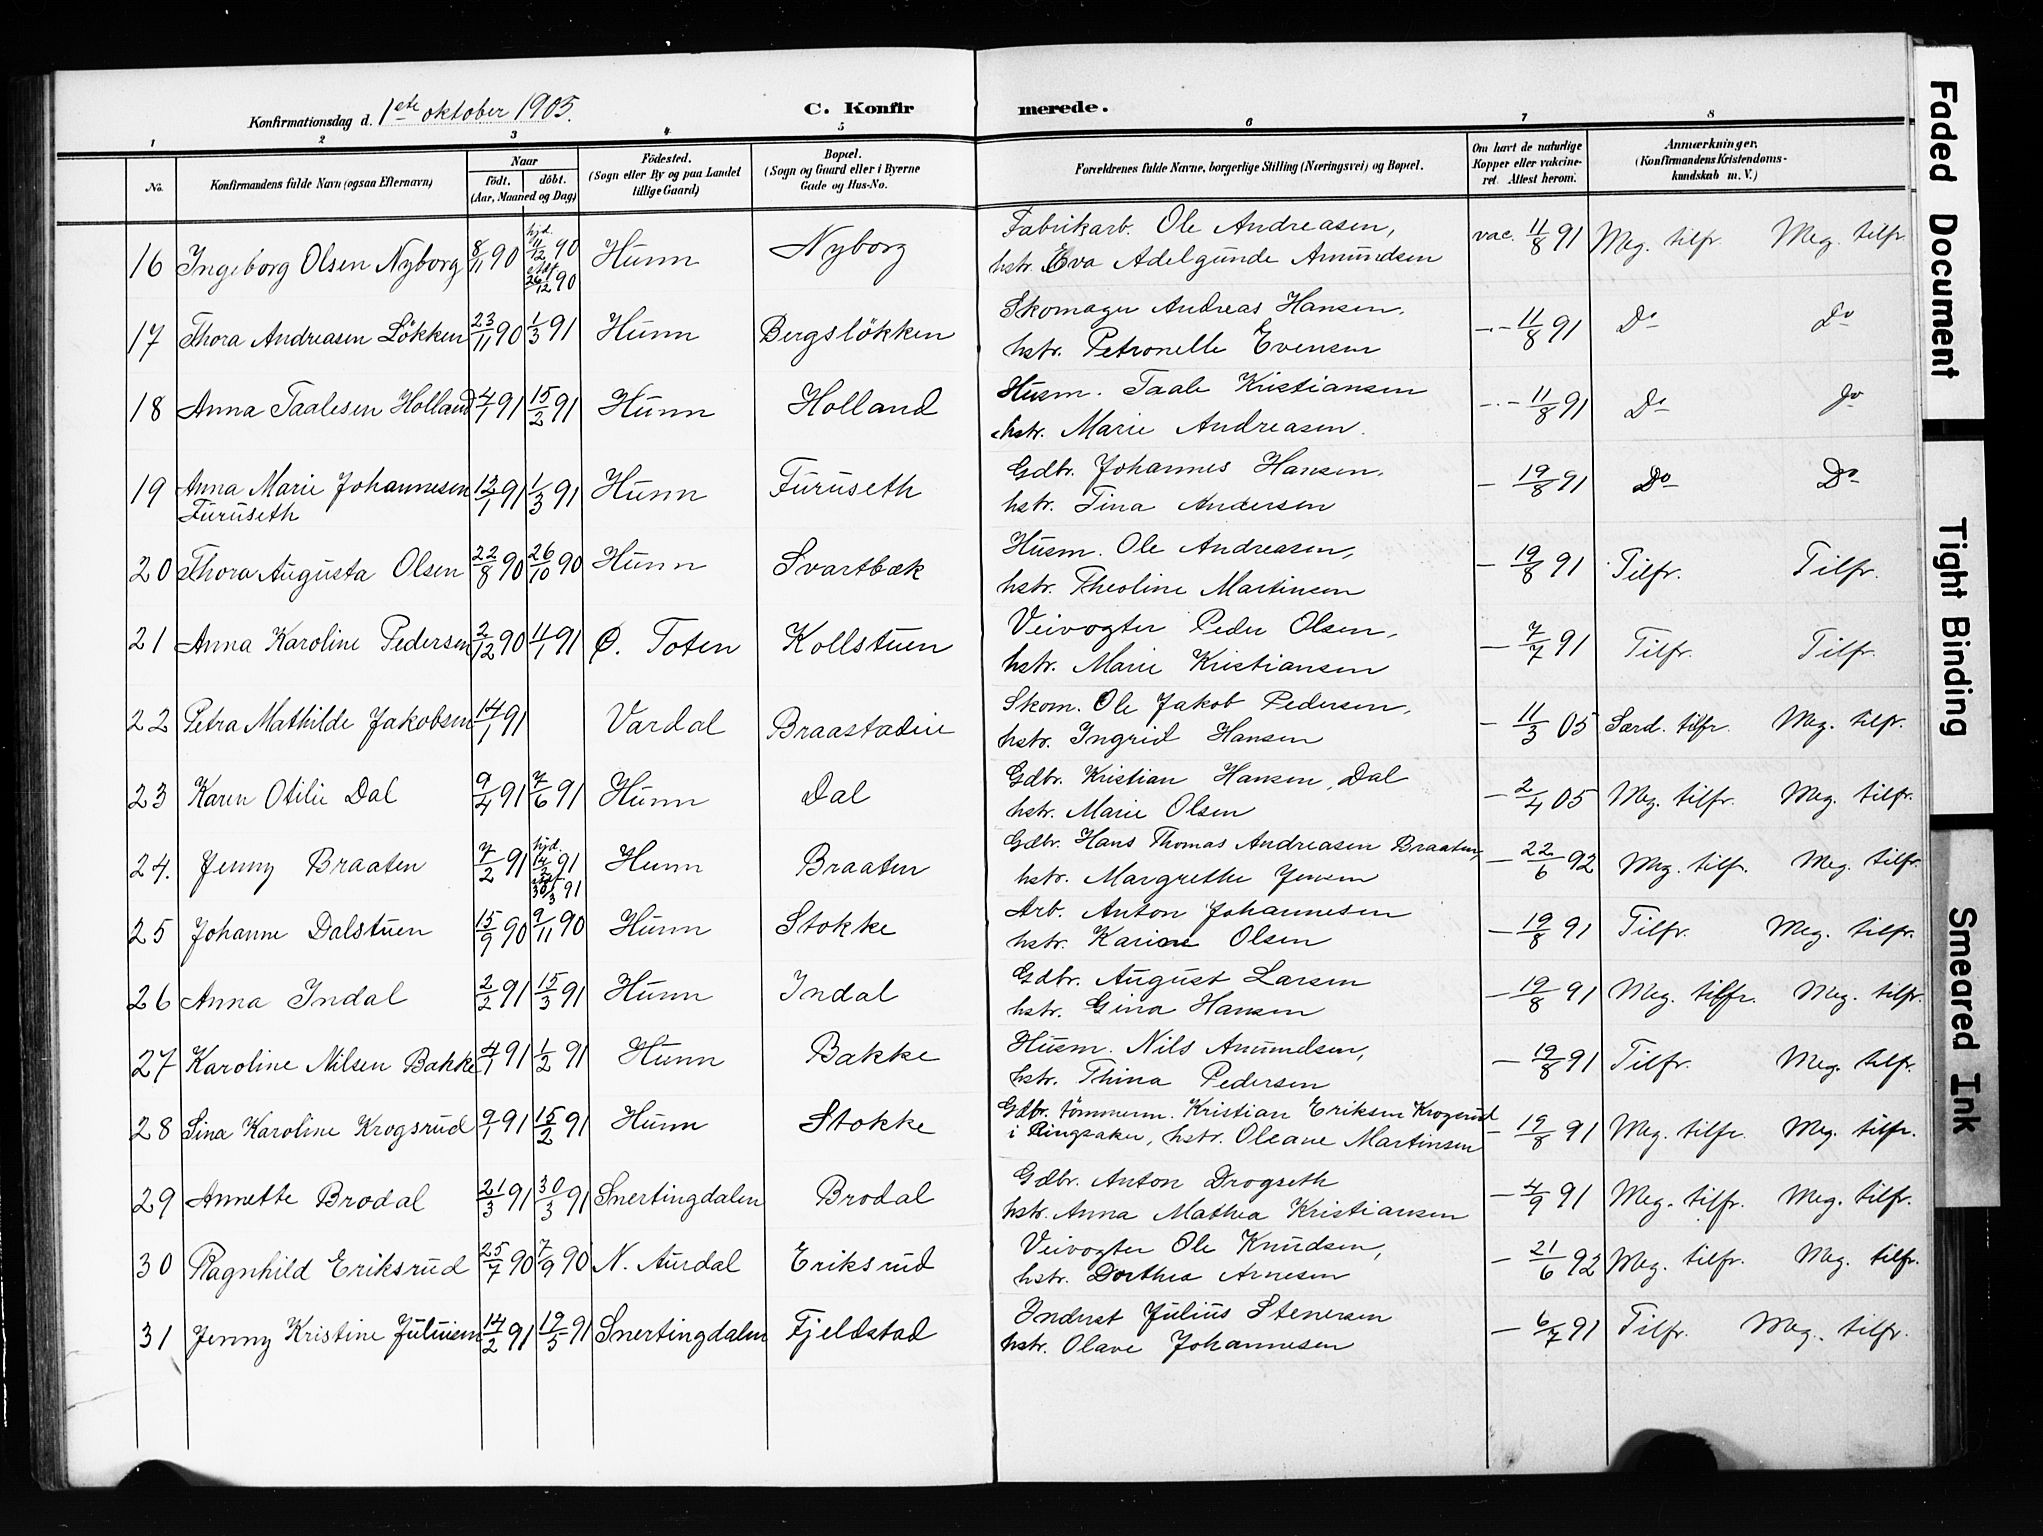 Konfirmationsdag d. 1ste oktober 1905. C. Konfirmerede.
1 2 3 4 5 6 7 8
No. Konfirmandens fulde Navn (ogsaa Efternavn) Naar født. døbt. (Aar, Maaned og Dag) Fødested. (Sogn eller By og paa Landet tillige Gaard) Bopæl. (Sogn og Gaard eller i Byerne Gade og Hus-No. Forældrenes fulde Navne, borgerlige Stilling (Næringsvei) og Bopæl. Om havt de naturlige Kopper eller vakcineret. Attest herom. Anmærkninger. (Konfirmandens Kristendomskundskab m. V.)
16 Ingeborg Olsen Nyborg 8/11 90 hjd. 11/12 90 26/12 90 Hunn Nyborg Fabrikarb. Ole Andreasen, vac. 11/8 91 Meg. tilfr. Meg. tilfr
hstr. Eva Adelgunde Amundsen
17 Thora Andreasen Løkken 23/11 90 1/3 91 Hunn Bergsløkken Skomager Andreas Hansen, -·- 11/8 91 Do Do
hstr. Petronelle Evensen
18 Anna Taalesen Holland 4/1 91 15/2 91 Hunn Holland Husm. Taale Kristiansen -·- 11/8 91 Do Do
hstr. Marie Andreasen.
19 Anna Marie Johannesen 13/1 91 1/3 91 Hunn Furuseth Gdbr. Johannes Hansen, - 19/8 91 Do Do
Furuseth hstr. Tina Andersen
20 Thora Augusta Olsen 22/8 90 26/10 90 Hunn Svartbæk Husm. Ole Andreasen, - 19/8 91 Tilfr. Tilfr.
hstr. Theoline Martinsen
21 Anna Karoline Pedersen 2/12 90 11/1 91 Ø. Toten Kollstuen Veivogter Peder Olsen, - 7/7 91 Tilfr. Tilfr.
hstr. Marie Kristiansen
22 Petra Mathilde Jakobsen 14/1 91 Vardal Braastadlie Skom. Ole Jakob Pedersen, - 11/3 05 Særd. tilfr. Meg. tilfr.
hstr. Ingrid Hansen
23 Karen Otilie Dal 9/4 91 7/6 91 Hunn Dal Gdbr. Kristian Hansen, Dal - 2/4 05 Meg. tilfr. Meg. tilfr.
hstr. Marie Olsen
24. Jenny Braaten 7/2 91 hjd. 14/2 91 30/3 91 Hunn Braaten Gdbr. Hans Thomas Andreasen Braaten, - 22/6 92 Meg. tilfr. Meg. tilfr.
hstr. Margrethe Jensen
25 Johanne Dalstuen 15/9 90 9/11 90 Hunn Stokke Arb. Anton Johannesen - 19/8 91 Tilfr. Meg. tilfr.
hstr. Karine Olsen
26 Anna Indal 2/2 91 15/3 91 Hunn Indal Gdbr. August Larsen - 19/8 91 Meg. tilfr. Meg. tilfr.
hstr. Gina Hansen
27 Karoline Nilsen Bakke 4/1 91 1/2 91 Hunn Bakke Husm. Nils Amundsen, - 19/8 91 Tilfr. Meg. tilfr.
hstr. Thina Pedersen
28 Sina Karoline Krogsrud 9/1 91 15/2 91 Hunn Stokke Gdbr. tømmerm. Kristian Eriksen Krogsrud - 19/8 91 Meg. tilfr. Meg. tilfr.
i Ringsaker, hstr. Oleane Martinsen
29 Annette Brodal 21/3 91 30/3 91 Snertingdalen Brodal Gdbr. Anton Drogseth - 4/9 91 Meg. tilfr. Meg. tilfr.
hstr. Anna Mathea Kristiansen
30 Ragnhild Eriksrud 25/7 90 7/9 90 N. Aurdal Eriksrud Veivogter Ole Knudsen, - 21/6 92 Meg. tilfr. Meg. tilfr.
hstr. Dorthea Arnesen
31 Jenny Kristine Juliusen 14/2 91 19/5 91 Snertingdalen Fjeldstad Inderst Julius Stenersen - 6/7 91 Tilfr. Meg. tilfr.
hstr. Olave Johannesen
Faded Document
Tight Binding
Smeared Ink